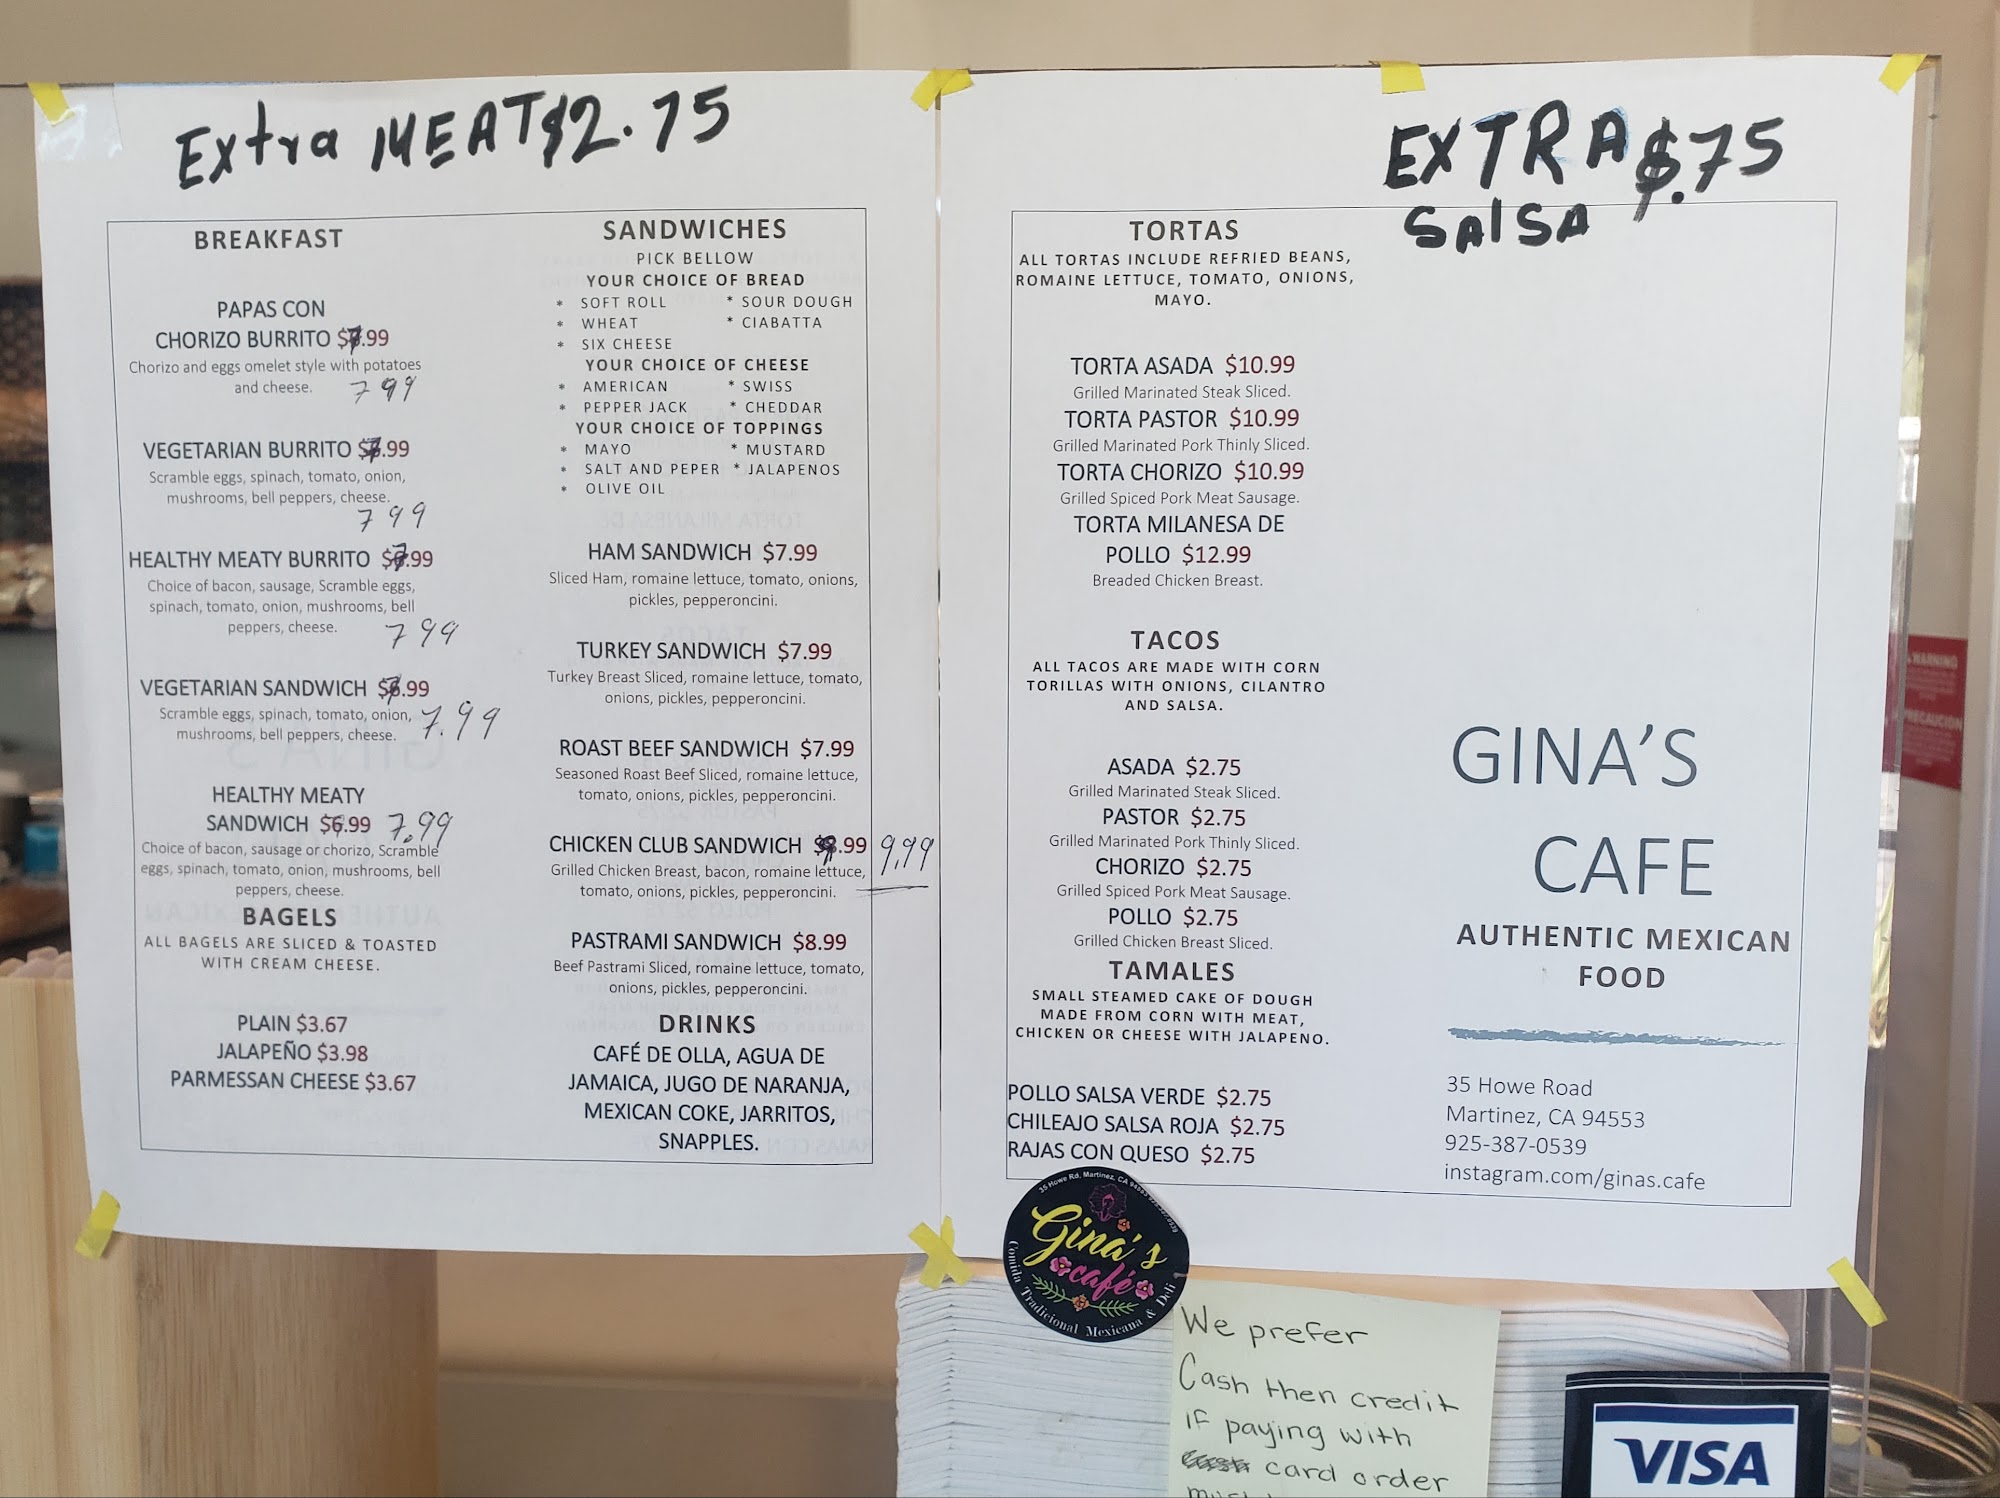 Extra MEAT $2.75
BREAKFAST
PAPAS CON
CHORIZO BURRITO $7.99
Chorizo and eggs omelet style with potatoes
and cheese.
7 99
VEGETARIAN BURRITO $7.99
Scramble eggs, spinach, tomato, onion,
mushrooms, bell peppers, cheese.
7 99
HEALTHY MEATY BURRITO $7.99
Choice of bacon, sausage, Scramble eggs,
spinach, tomato, onion, mushrooms, bell
peppers, cheese.
7 99
VEGETARIAN SANDWICH $7.99
Scramble eggs, spinach, tomato, onion,
mushrooms, bell peppers, cheese.
7.99
HEALTHY MEATY
SANDWICH $6.99 7.99
Choice of bacon, sausage or chorizo, Scramble
eggs, spinach, tomato, onion, mushrooms, bell
peppers, cheese.
BAGELS
ALL BAGELS ARE SLICED & TOASTED
WITH CREAM CHEESE.
PLAIN $3.67
JALAPEÑO $3.98
PARMESSAN CHEESE $3.67
SANDWICHES
PICK BELLOW
YOUR CHOICE OF BREAD
* SOFT ROLL * SOUR DOUGH
* WHEAT * CIABATTA
* SIX CHEESE
YOUR CHOICE OF CHEESE
* AMERICAN * SWISS
* PEPPER JACK * CHEDDAR
YOUR CHOICE OF TOPPINGS
* MAYO * MUSTARD
* SALT AND PEPER * JALAPENOS
* OLIVE OIL
HAM SANDWICH $7.99
Sliced Ham, romaine lettuce, tomato, onions,
pickles, pepperoncini.
TURKEY SANDWICH $7.99
Turkey Breast Sliced, romaine lettuce, tomato,
onions, pickles, pepperoncini.
ROAST BEEF SANDWICH $7.99
Seasoned Roast Beef Sliced, romaine lettuce,
tomato, onions, pickles, pepperoncini.
CHICKEN CLUB SANDWICH $9.99 9.99
Grilled Chicken Breast, bacon, romaine lettuce,
tomato, onions, pickles, pepperoncini.
PASTRAMI SANDWICH $8.99
Beef Pastrami Sliced, romaine lettuce, tomato,
onions, pickles, pepperoncini.
DRINKS
CAFÉ DE OLLA, AGUA DE
JAMAICA, JUGO DE NARANJA,
MEXICAN COKE, JARRITOS,
SNAPPLES.
EXTRA $.75
SALSA
TORTAS
ALL TORTAS INCLUDE REFRIED BEANS,
ROMAINE LETTUCE, TOMATO, ONIONS,
MAYO.
TORTA ASADA $10.99
Grilled Marinated Steak Sliced.
TORTA PASTOR $10.99
Grilled Marinated Pork Thinly Sliced.
TORTA CHORIZO $10.99
Grilled Spiced Pork Meat Sausage.
TORTA MILANESA DE
POLLO $12.99
Breaded Chicken Breast.
TACOS
ALL TACOS ARE MADE WITH CORN
TORILLAS WITH ONIONS, CILANTRO
AND SALSA.
ASADA $2.75
Grilled Marinated Steak Sliced.
PASTOR $2.75
Grilled Marinated Pork Thinly Sliced.
CHORIZO $2.75
Grilled Spiced Pork Meat Sausage.
POLLO $2.75
Grilled Chicken Breast Sliced.
TAMALES
SMALL STEAMED CAKE OF DOUGH
MADE FROM CORN WITH MEAT,
CHICKEN OR CHEESE WITH JALAPENO.
POLLO SALSA VERDE $2.75
CHILEAJO SALSA ROJA $2.75
RAJAS CON QUESO $2.75
GINA'S
CAFE
AUTHENTIC MEXICAN
FOOD
35 Howe Road
Martinez, CA 94553
925-387-0539
instagram.com/ginas.cafe
WARNING
PRECAUCION
35 Howe Rd, Martinez, CA
Gina's
café
Comida Tradicional Mexicana & Deli
We prefer
Cash then credit
if paying with
card order
VISA